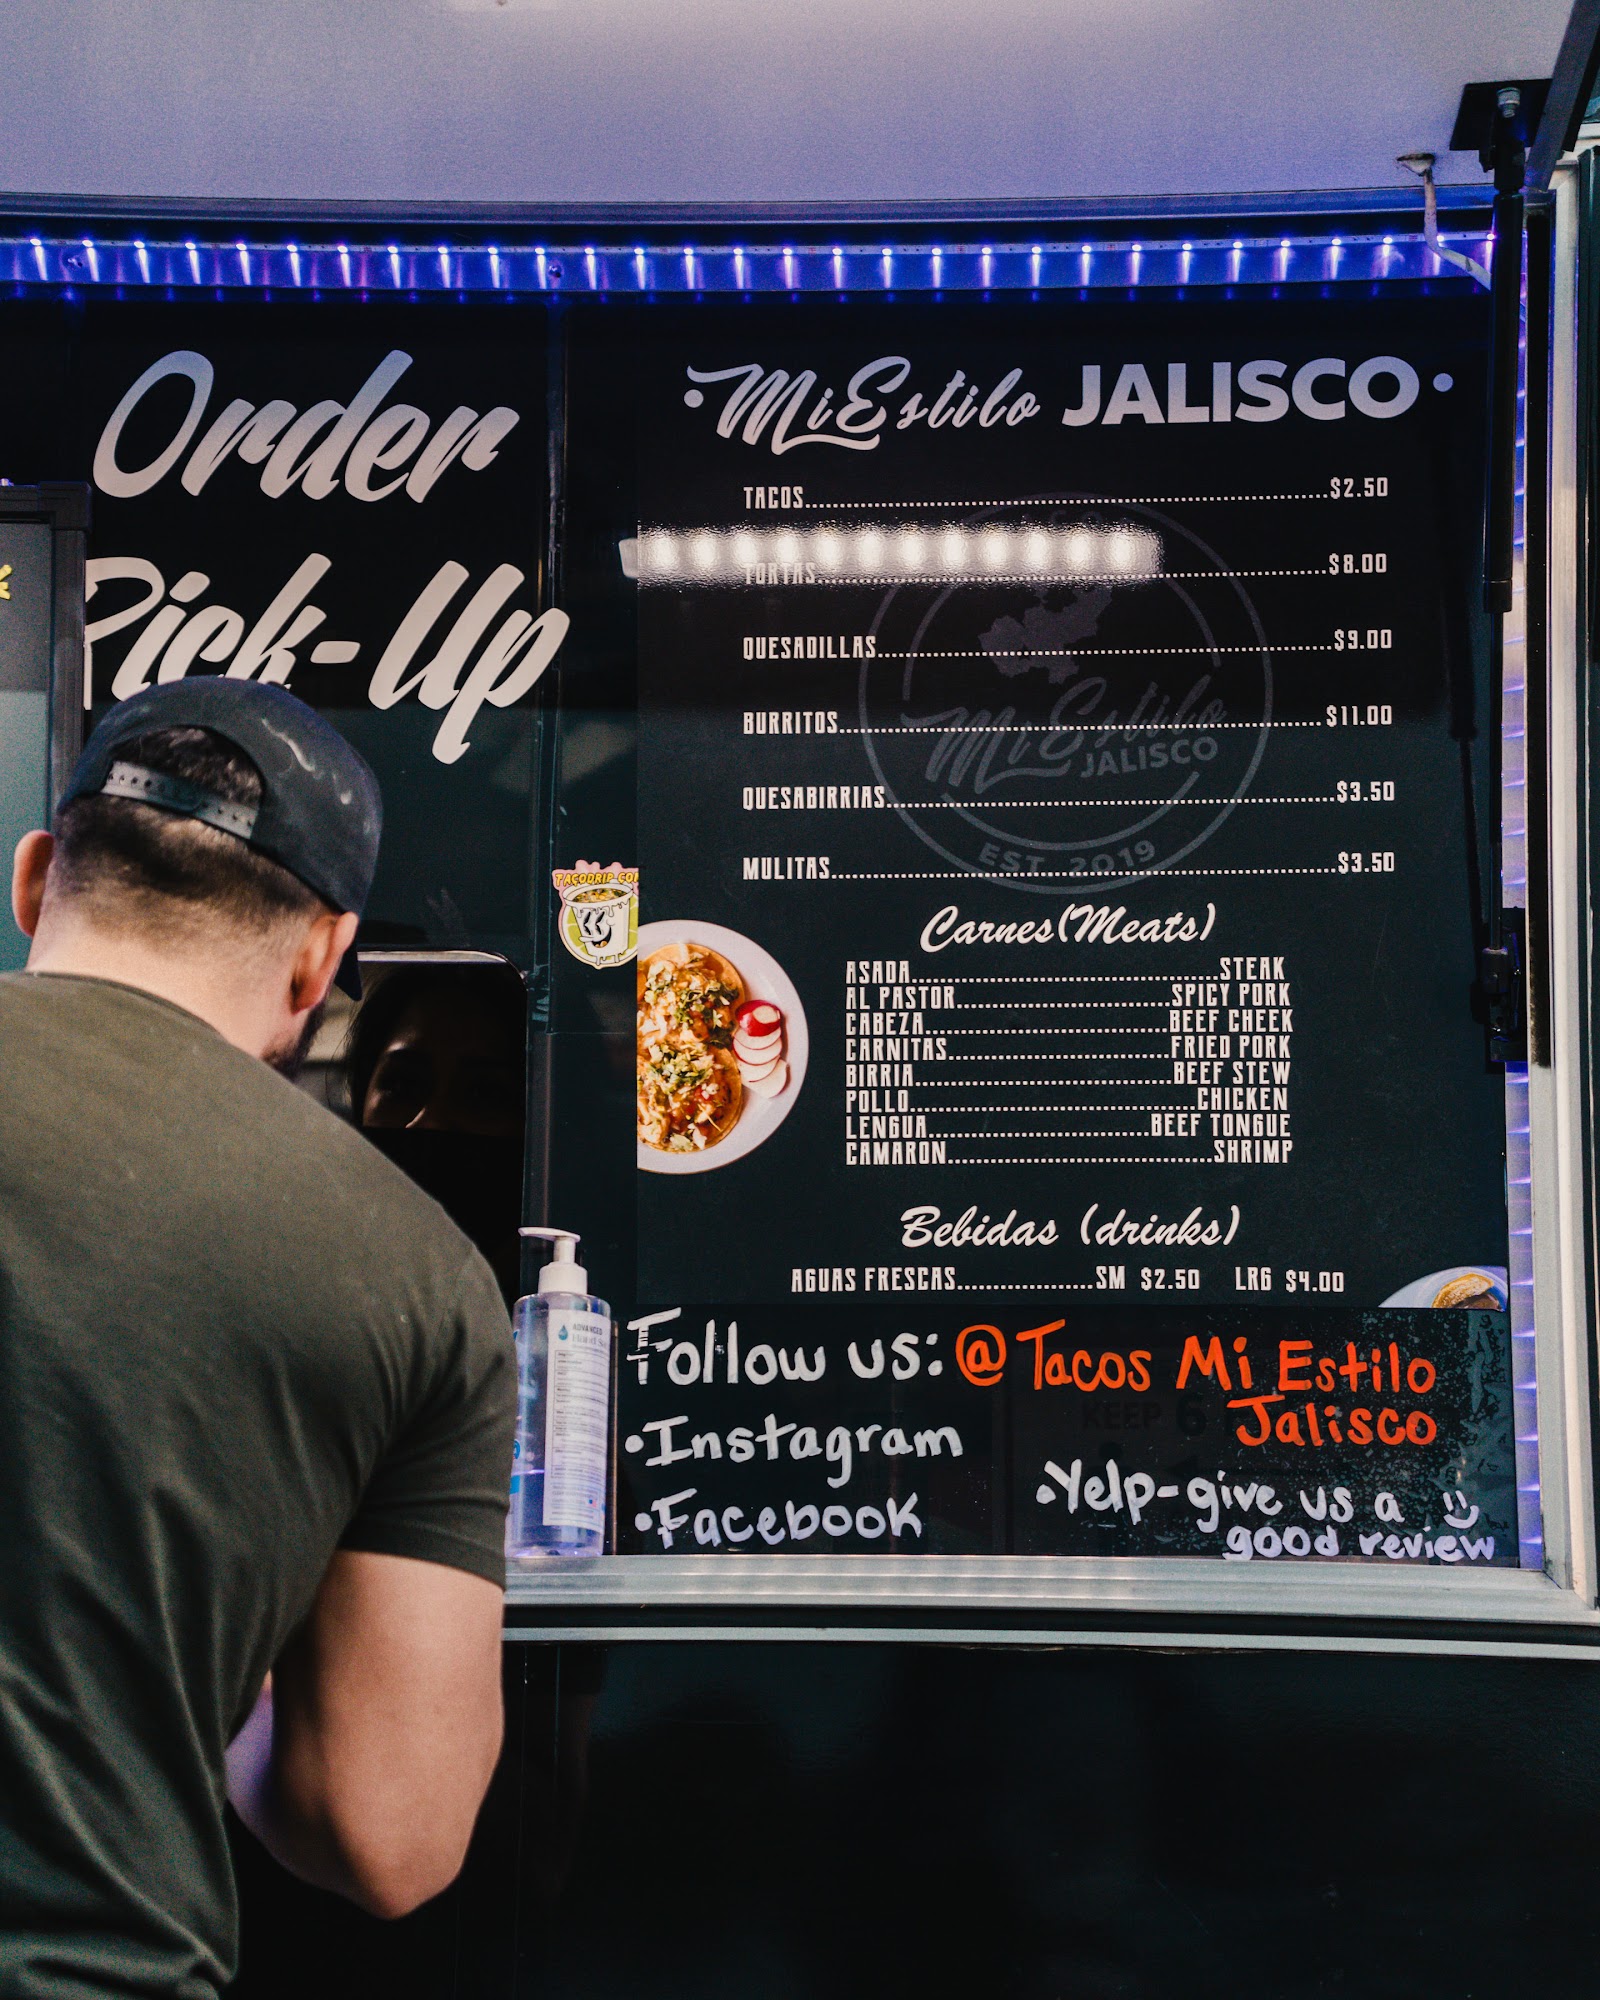 Order
Pick-Up
• Mi Estilo JALISCO •
TACOS........$2.50
TORTAS........$8.00
QUESADILLAS........$9.00
BURRITOS........$11.00
QUESABIRRIAS........$3.50
MULITAS........$3.50
Mi Estilo
JALISCO
EST. 2019
TACODRIP.COM
Carnes(Meats)
ASADA........STEAK
AL PASTOR........SPICY PORK
CABEZA........BEEF CHEEK
CARNITAS........FRIED PORK
BIRRIA........BEEF STEW
POLLO........CHICKEN
LENGUA........BEEF TONGUE
CAMARON........SHRIMP
Bebidas (drinks)
AGUAS FRESCAS........SM $2.50 LRG $4.00
Follow us: @Tacos Mi Estilo
Jalisco
KEEP 6
•Instagram
•Facebook
•Yelp-give us a
good review
ADVANCED
Hand